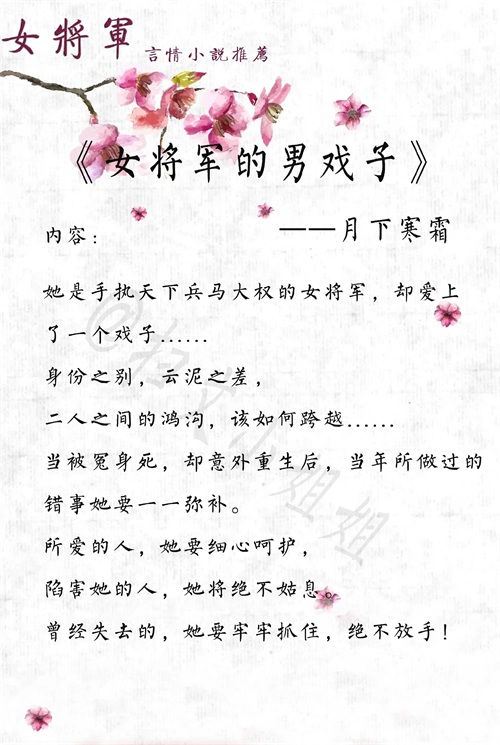 女將軍
言情小說推薦
《女将军的男戏子》
——月下寒霜
内容：
她是手执天下兵马大权的女将军，却爱上
了一个戏子……
身份之别，云泥之差，
二人之间的鸿沟，该如何跨越……
当被冤身死，却意外重生后，当年所做过的
错事她要一一弥补。
所爱的人，她要细心呵护，
陷害她的人，她将绝不姑息。
曾经失去的，她要牢牢抓住，绝不放手！